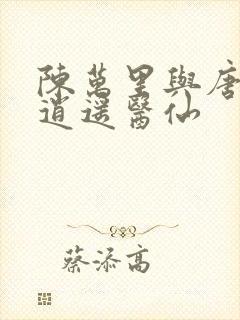 陳萬里與唐
逍遥醫仙
蔡添高